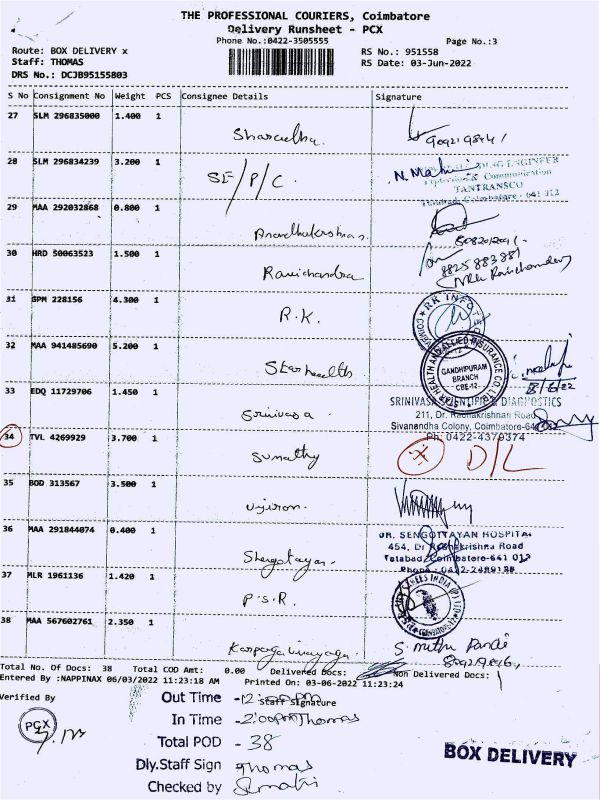 THE PROFESSIONAL COURIERS, Coimbatore
Delivery Runsheet - PCX
Phone No.:0422-3505555
Page No.:3
Route: BOX DELIVERY x
Staff: THOMAS
DRS No.: DCJB95155803
RS No.: 951558
RS Date: 03-Jun-2022
S No Consignment No Weight PCS Consignee Details Signature
27 SLM 296835000 1.400 1
28 SLM 296834239 3.200 1 SE/P/C. N.
TANTRANSCO
29 MAA 292032868 0.800 1
30 HRD 50063523 1.500 1 Ravichandra
8825883881
31 GPM 228156 4.300 1 R.K.
RK INFO
32 MAA 941485690 5.200 1 Starhealth
HEALTH AND ALLIED INSURANCE CO. LTD
GANDHIPURAM
BRANCH
CBE-12
33 EDQ 11729706 1.450 1 Srinivasa
SRINIVASA SCIENTIFIC & DIAGNOSTICS
211, Dr. Radhakrishnan Road
Sivanandha Colony, Coimbatore-641
Ph: 0422-4379374
34 TVL 4269929 3.700 1 Sumathy D/L
35 BOD 313567 3.500 1
36 MAA 291844074 0.400 1
DR. SENGOTTAYAN HOSPITAL
454, Dr Radhakrishna Road
Tatabad, Coimbatore-641 012
Phone : 0422-
37 MLR 1961136 1.420 1 P.S.R.
38 MAA 567602761 2.350 1 Karpagavinayaga
S. Muthu
Total No. Of Docs: 38 Total COD Amt: 0.00 Delivered Docs: Non Delivered Docs: 1
Entered By :NAPPINAX 06/03/2022 11:23:18 AM Printed On: 03-06-2022 11:23:24
Verified By
Staff Signature
PCX
Out Time - 12:00PM
In Time - 2:00PM Thomas
Total POD - 38
Dly.Staff Sign Thomas
Checked by
BOX DELIVERY